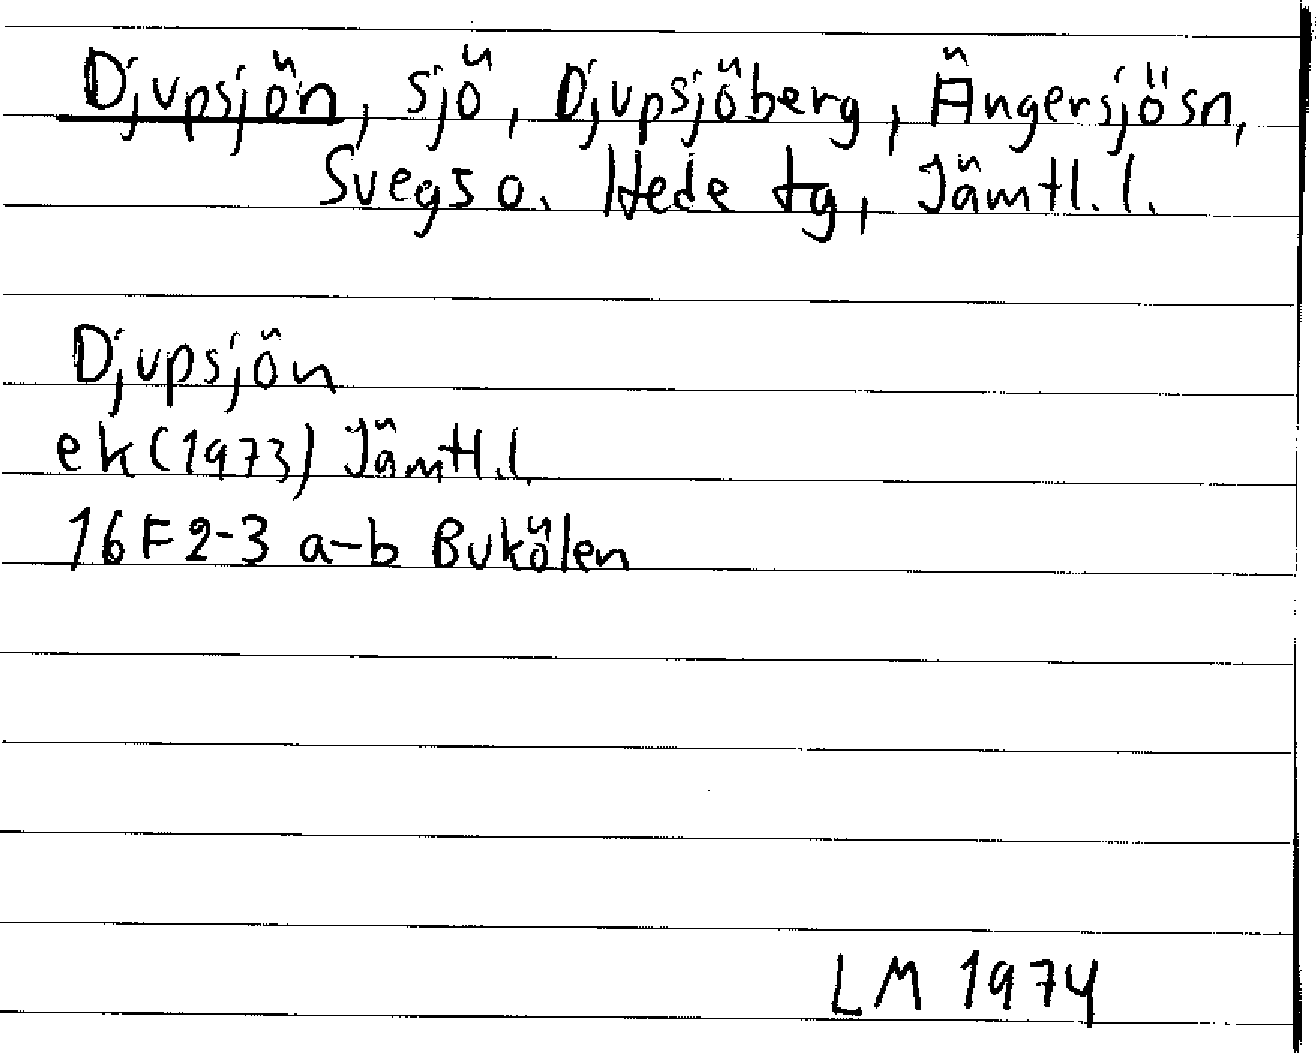 Djupsjön, sjö, Djupsjöberg, Ängersjösn,
Svegs o. Hede tg, Jämtl. l.
Djupsjön
ek (1973) Jämtl. l.
16 F 2-3 a-b Bukölen
LM 1974